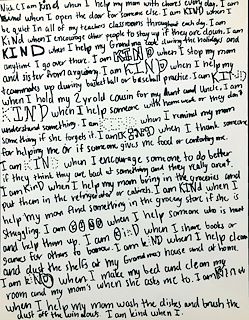 Nick C I am kind when I help my mom with chores every day. I am
kind when I open the door for someone else. I am KIND when I
be quiet in all of my teachers classrooms throughout each day. I am
KIND when I encourage other people to stay up if they are down. I am
KIND when I help my Grandma cook during the holidays and
anytime I go over there. I am KIND when I stop my mom
and sister from arguing. I am KIND when I help my
teammates up during basketball or baseball practice. I am KIND
when I hold my 2 yr old cousin for my Aunt and Uncle. I am
KIND when I help someone with homework or they don't
understand something. I am when I remind my mom
something if she forgets it. I am KIND when I thank someone
for helping me or if someone gives me food or comforting me.
I am KIND when I encourage someone to do better
if they think they are bad at something and they really aren't.
I am KIND when I help my mom bring in the groceries and
put them in the refrigerator or cabinets. I am KIND when I
help my mom find something in the grocery store if she is
struggling. I am KIND when I help someone who is hurt
and help them up. I am KIND when I share books or
games for others to borrow. I am KIND when I help clean
and dust the shelfs at my Grandmas house and at home.
I am KIND when I make my bed and clean my
room and my mom's when she asks me to. I am KIND
when I help my mom wash the dishes and brush the
dust off the windows. I am kind when I.